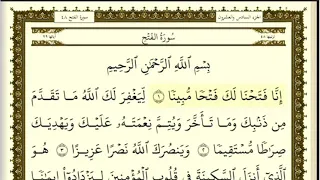 الجزء السادس والعشرون
سورة الفتح ٤٨
سُورَةُ الفَتْحِ
بِسْمِ اللَّهِ الرَّحْمَٰنِ الرَّحِيمِ
إِنَّا فَتَحْنَا لَكَ فَتْحًا مُّبِينًا ١ لِّيَغْفِرَ لَكَ اللَّهُ مَا تَقَدَّمَ
مِن ذَنۢبِكَ وَمَا تَأَخَّرَ وَيُتِمَّ نِعْمَتَهُۥ عَلَيْكَ وَيَهْدِيَكَ
صِرَٰطًا مُّسْتَقِيمًا ٢ وَيَنصُرَكَ اللَّهُ نَصْرًا عَزِيزًا ٣ هُوَ
الَّذِىٓ أَنزَلَ السَّكِينَةَ فِى قُلُوبِ الْمُؤْمِنِينَ لِيَزْدَادُوٓا۟ إِيمَٰنًا